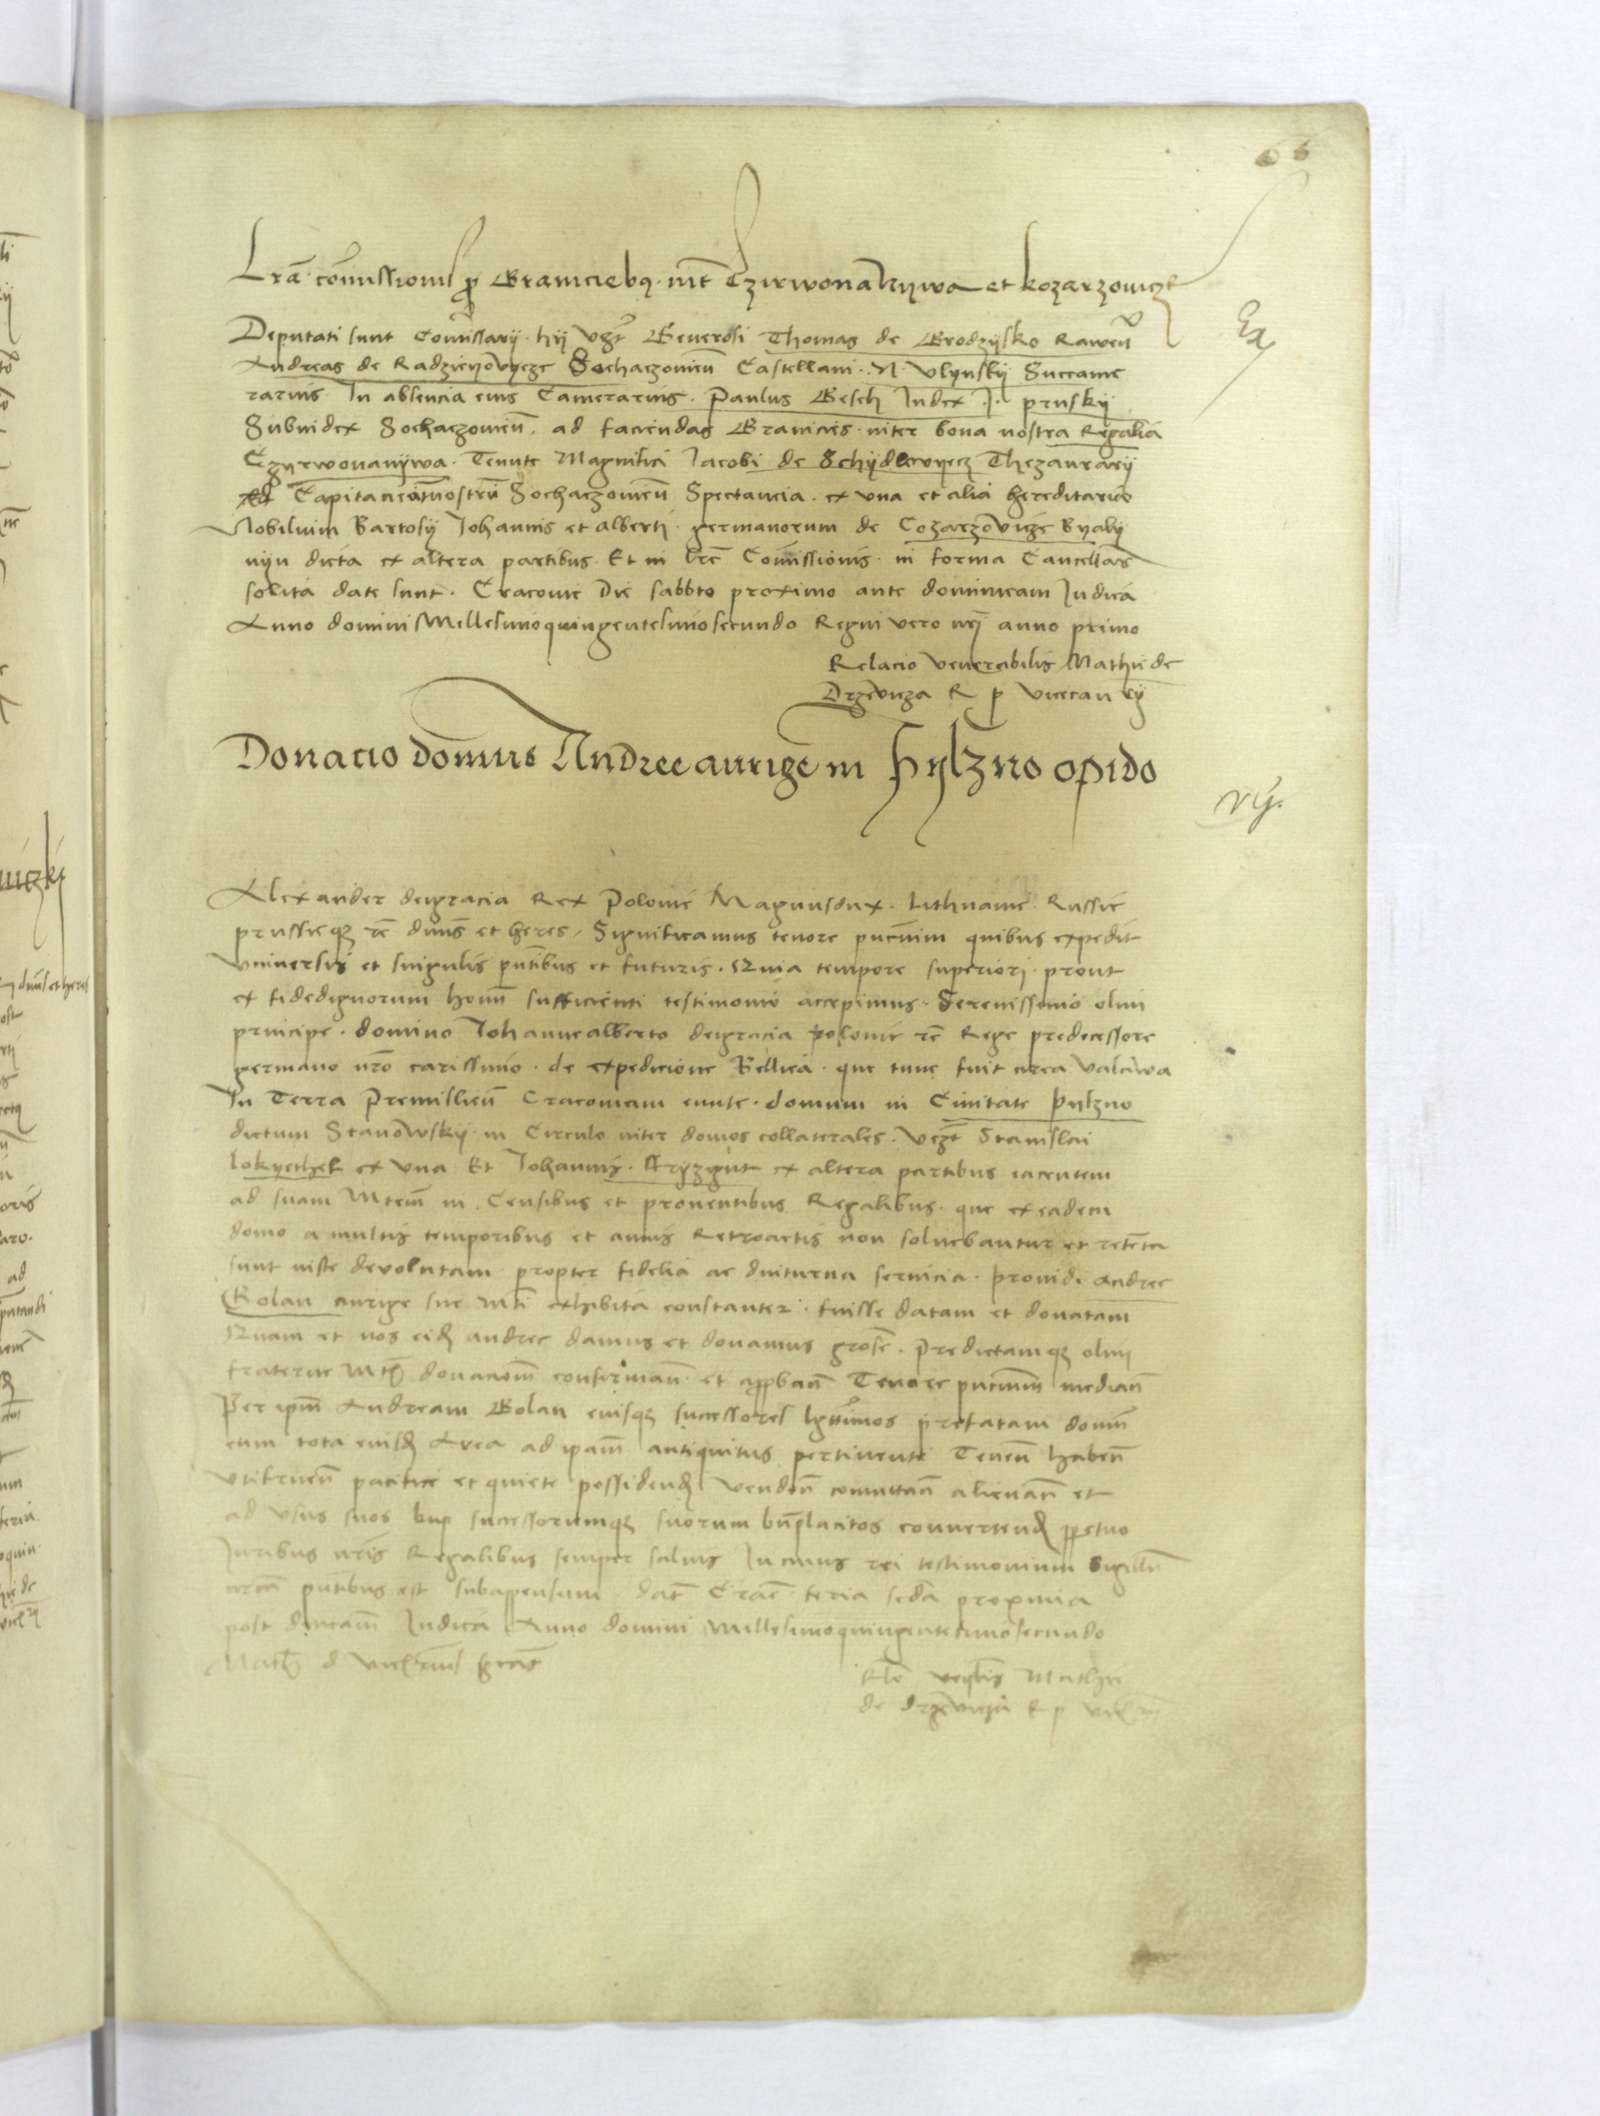 66
Lrã comissionis p Graniciebus int Czirwona Nywa et kozarzovicze
Deputati sunt Comissarij hij vz Generosi Thomas de Brodzysko Raweñ
Andreas de Radzieyovycze Sochaczovieñ Castellani N Vlynskij Succame
rarius In absencia eius Camerarius Paulus Gesch Iudex I pruskij
Subiudex Sochaczovieñ ad faciendas Granicies inter bona nostra Regalia
Czyrwonanywa Tenute Magnifici Iacobi de Schydlovyecz Thezaurarij
Capitaneatus nostri Sochaczovieñ Spectancia ex una et alia hereditaria
Nobilium Bartosij Johannis et alberti germanorum de Cozarzovicze Byaly
nyn dicta ex altera partibus Et in lre Comissionis in forma Cancellar
solita date sunt Cracovie Die sabbto proximo ante dominicam Iudica
Anno domini Millesimoquingentesimosecundo Regni vero nri anno primo
Relacio venerabilis Mathie de
Drzevicza R p vicecan rij
Ex
Donacio domus Andree aurige in pylzno opido
rij
Alexander dei gracia Rex Polonie Magnusdux Lithuanie Russie
prussieq rē dnūs et heres Significamus tenore pntium quibus expedit
vniversis et singulis pntibus et futuris Quia tempore superiori prout
ex fidedignorum homū sufficienti testimonio accepimus Serenissimo olim
principe domino Johannealberto dei gracia polonie rē Rege predecessore
germano nrō carissimo de expedicione Bellica que tunc fuit circa valawa
In Terra Premislieñ Cracoviam eunte domum in Civitate pylzno
dictum Stanowskij in Circulo inter domos collaterales vzt Stanislai
lokyethek ex una Et Johannis Kryzgyut ex altera partibus iacentem
ad suam Mtem in Censibus et proventibus Regalibus que ex eadem
domo a multis temporibus et annis Retroactis non solvebantur et retenta
sunt iuste devolutam propter fidelia ac diuturna servicia providi Andree
Golan aurige sue Mti exhibita constanter fuisse datam et donatam
Quam et nos eid andree damus et donamus grose Predictamq olim
fraterne Mtis donacionē confirmam et approbam Tenore pntium median
Per ipm Andream Golan eiusq successores lgttimos prefatam domū
cum tota eiusd Area ad ipam antiquitus pertinente Teneñ habeñ
vtifrueñ pacifice et quiete possidend vendeñ comuttañ alienañ et
ad vsus suos successorumq suorum bnplacitos convertend ppetuo
Iuribus nris Regalibus semper salvis In cuius rei testimonium Sigillū
nrum pntibus est subappensum dat Crac feria seda proxima
post dnicam Iudica Anno domini Millesimoquingentesimosecundo
Relo venlis Mathie
de drzevicza R p